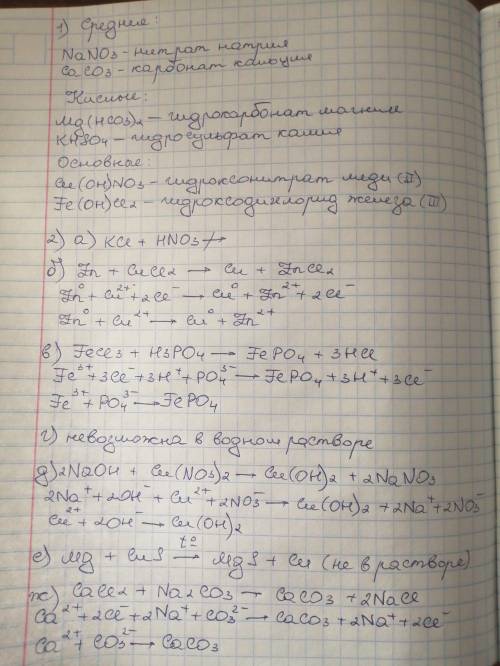 1) Средние:
NaNO3 - нитрат натрия
CaCO3 - карбонат кальция
Кислые:
Mg(HCO3)2 - гидрокарбонат магния
KHSO4 - гидросульфат калия
Основные:
Cu(OH)NO3 - гидроксонитрат меди (II)
Fe(OH)Cl2 - гидроксодихлорид железа (III)
2) а) KCl + HNO3 ↛
б) Zn + CuCl2 → Cu + ZnCl2
Zn⁰ + Cu²⁺ + 2Cl⁻ → Cu⁰ + Zn²⁺ + 2Cl⁻
Zn⁰ + Cu²⁺ → Cu⁰ + Zn²⁺
в) FeCl3 + H3PO4 → FePO4 + 3HCl
Fe³⁺ + 3Cl⁻ + 3H⁺ + PO4³⁻ → FePO4 + 3H⁺ + 3Cl⁻
Fe³⁺ + PO4³⁻ → FePO4
г) невозможна в водном растворе
д) 2NaOH + Cu(NO3)2 → Cu(OH)2 + 2NaNO3
2Na⁺ + 2OH⁻ + Cu²⁺ + 2NO3⁻ → Cu(OH)2 + 2Na⁺ + 2NO3⁻
Cu²⁺ + 2OH⁻ → Cu(OH)2
е) Mg + CuS t° → MgS + Cu (не в растворе)
ж) CaCl2 + Na2CO3 → CaCO3 + 2NaCl
Ca²⁺ + 2Cl⁻ + 2Na⁺ + CO3²⁻ → CaCO3 + 2Na⁺ + 2Cl⁻
Ca²⁺ + CO3²⁻ → CaCO3